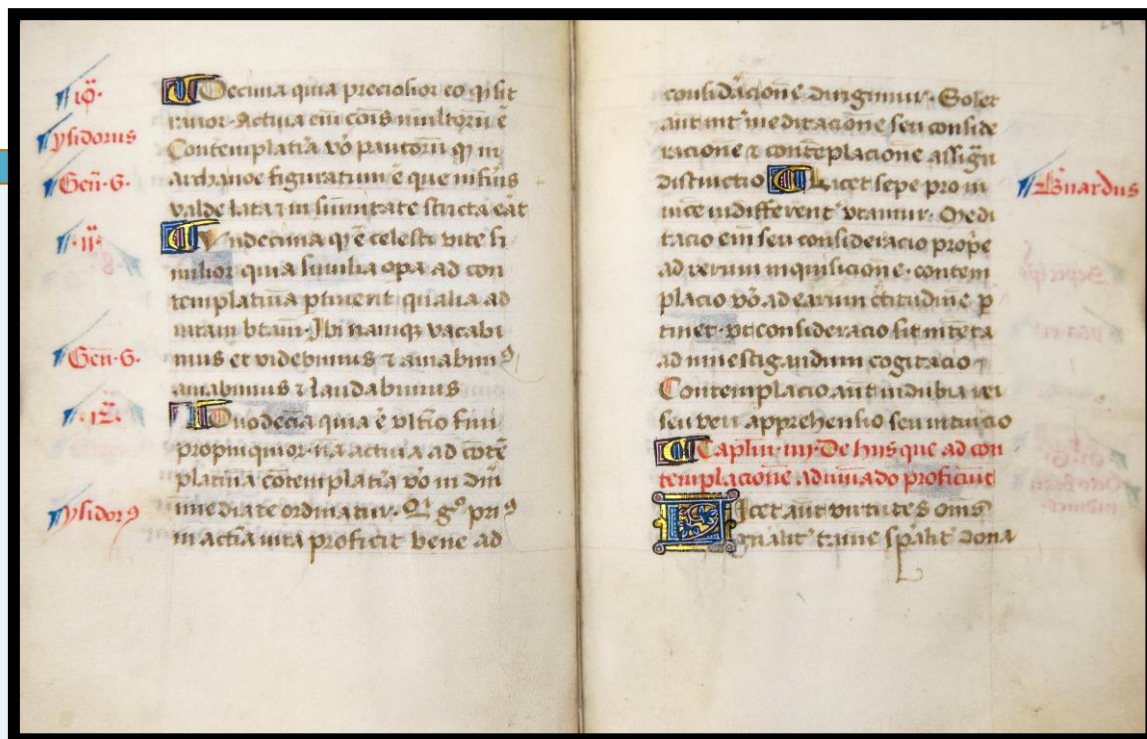 10.
ysidorus
Gen̄. 6.
.11.
Gen̄. 6.
.12.
ysidorꝰ
Decima quia preciosior eo qꝫ sit
rarior. Actiua eīn cōis multoꝝ ē
Contemplatīa vō paucorū qꝫ in
archa noe figuratum ē que inferiꝰ
valde lata ⁊ in sūmitate stricta erat
Vndecima qꝫ ē celesti vite si
milior quia similia opa ad con
templatiuā ptinent qualia ad
vitam btam. Ibi namqꝫ vacabi
mus et videbimus ⁊ amabimꝰ
amabimus ⁊ laudabimus
Duodecīa quia ē vltīo fini
propinquior. nā actiua ad cōtē
platiuā cōtemplatīa vō in dm̄
īmediate ordinatur. gͦ priꝰ
in actīa uita proficit bene ad
24
considacionē dirigimur. Solet
aut int̕ meditacionē seu conside
racionē ⁊ contēplacionē assignī
distinctio licet sepe pro in
uice indifferent̕ vtamur. Medi
tacio eīn seu consideracio propͤ
ad verum inquisicionē. contem
placio vō ad earum c̄titudinē p
tinet. vt consideracio sit intēta
ad inuestigandum cogitacio
Contemplacio aut indubia rei
seu veri apprehensio seu intuicio
Caplm̄. iiij. De hiis que ad con
templacionē admirādo proficiūt
Licet aut virtutes oms̄
dona
Bnardus